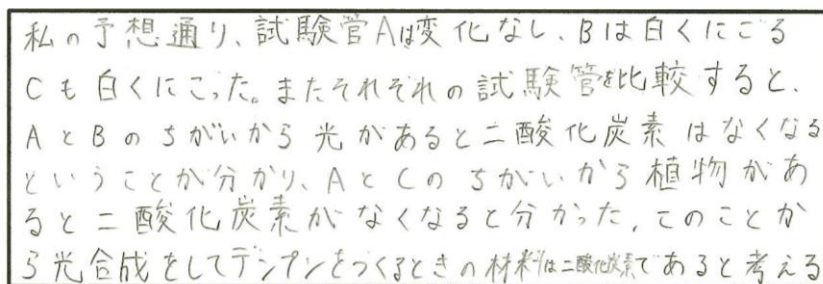 私の予想通り、試験管Aは変化なし、Bは白くにごる
Cも白くにごった。またそれぞれの試験管を比較すると、
AとBのちがいから光があると二酸化炭素はなくなる
ということが分かり、AとCのちがいから植物があ
ると二酸化炭素がなくなると分かった。このことか
ら光合成をしてデンプンをつくるときの材料は二酸化炭素であると考える